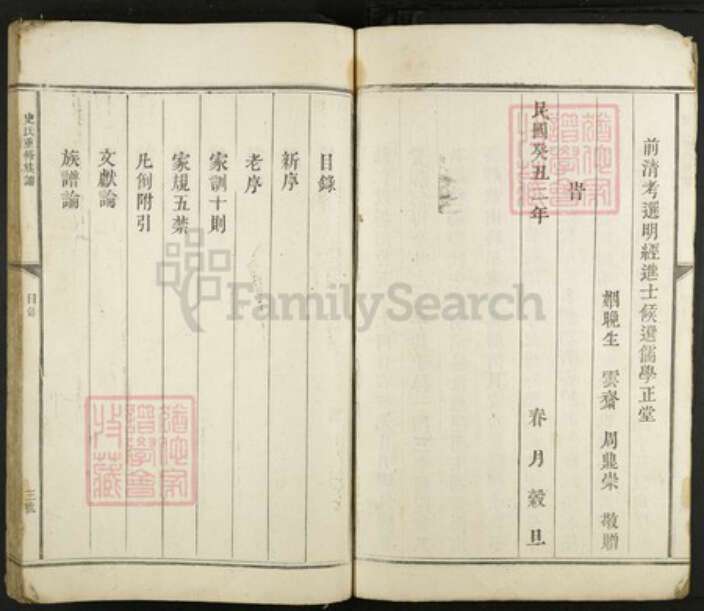 前清考選明經進士候選儒學正堂
姻晚生 雲齋 周鼎榮 敬贈
旹
民國癸丑二年 春月穀旦
目錄
新序
老序
家訓十則
家規五禁
凡例附引
文獻論
族譜論
史氏重修族譜
目錄
FamilySearch